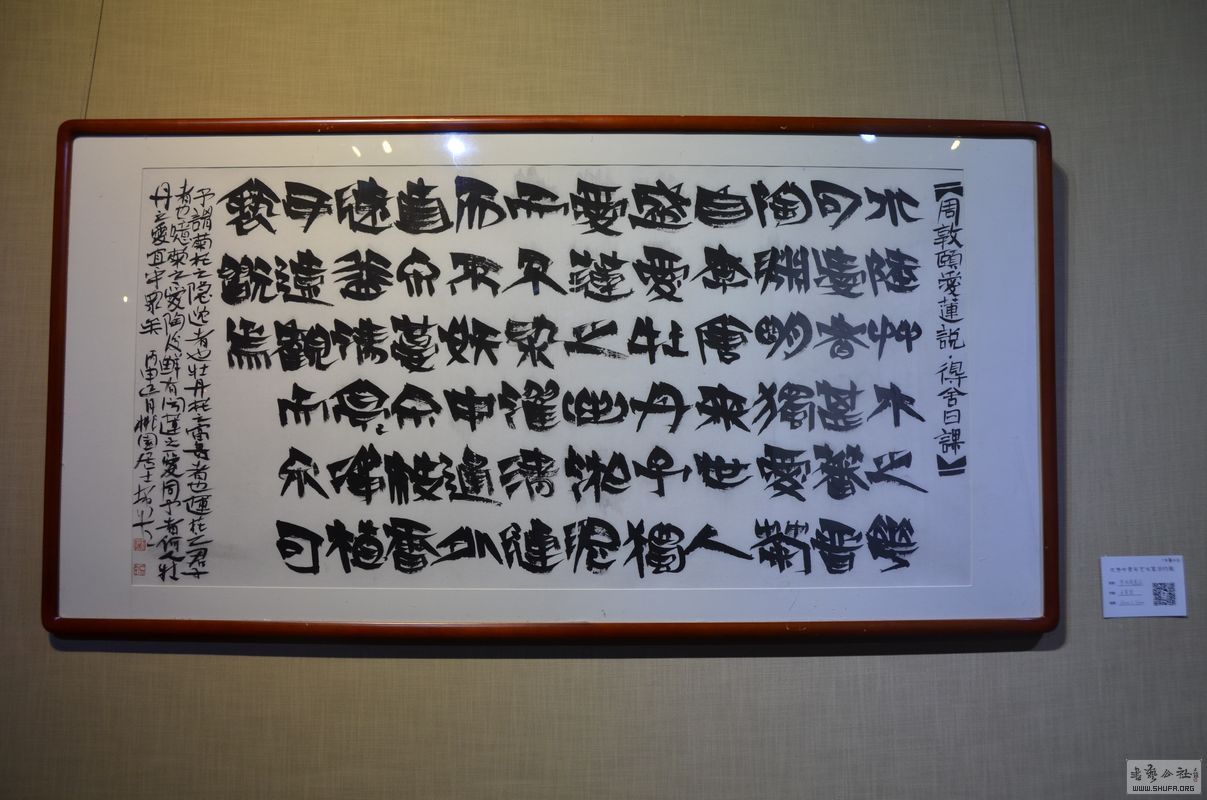 【周敦頤愛蓮說·得舍日課】
水陸艸木之花
可愛者甚蕃晉
陶淵明獨愛菊
自李唐來世人
盛愛牡丹予獨
愛蓮之出淤泥
而不染濯清漣
而不妖中通外
直不蔓不枝香
遠益清亭〻淨植
可遠觀而不可
褻玩焉
予謂菊花之隱逸者也牡丹花之富貴者也蓮花之君子
者也噫菊之愛陶後鮮有聞蓮之愛同予者何人牡
丹之愛宜乎眾矣 丙申五月桃園居士
書藝公社
WWW.SHUFA.ORG